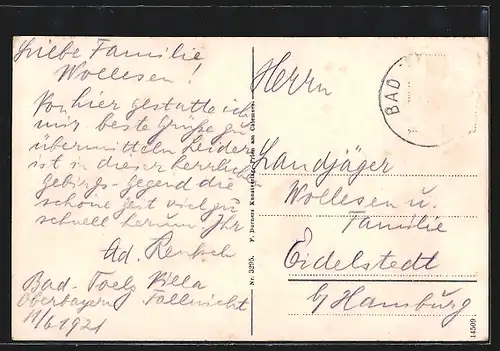 Liebe Familie
Wollesen!
Von hier gestatte ich
mir beste Grüße zu
übermitteln Leider
ist in dieser herrlichen
gebirgs-gegend die
schöne zeit viel zu
schnell herum Ihr
Ad. Rentsch
Bad-Toelz Villa
Oberbayern Fallnicht
11/6 1921
Nr. 3295. F. Durners Kunstverlag, Prien am Chiemsee
BAD
Herrn
Landjäger
Wollesen u.
Familie
Eidelstedt
b/ Hamburg
14509